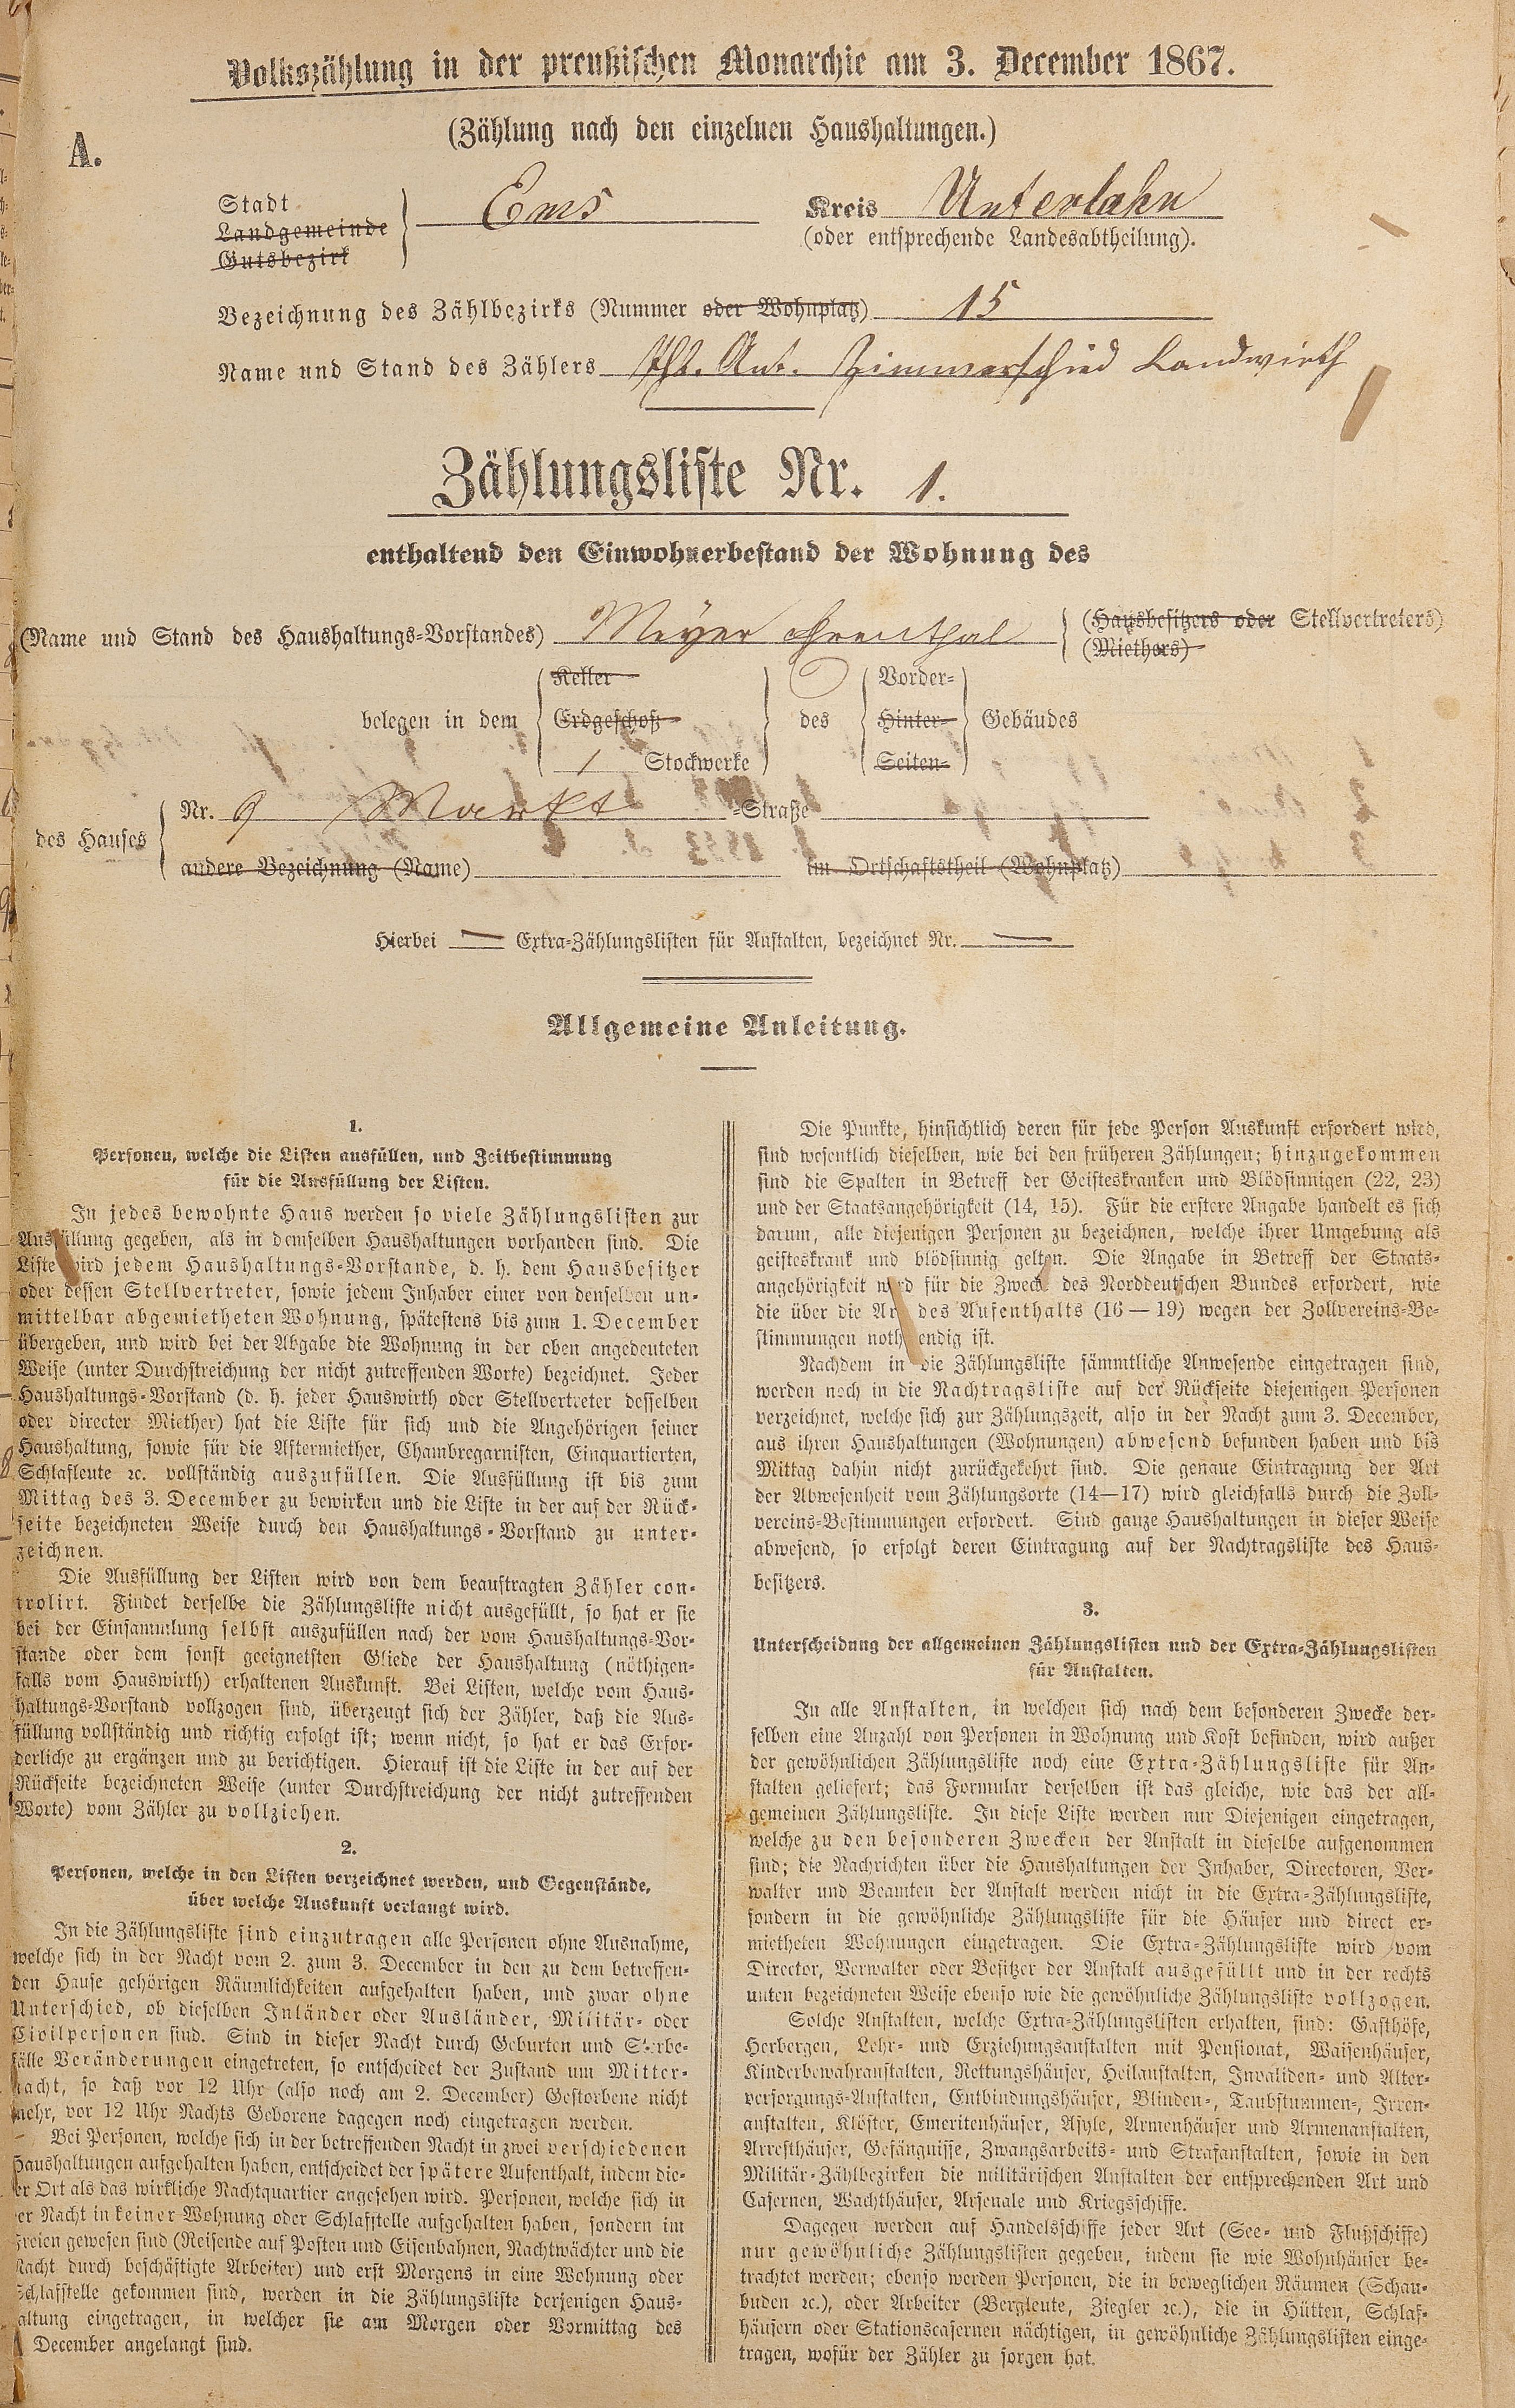 Volkszählung in der preußischen Monarchie am 3. December 1867.
(Zählung nach den einzelnen Haushaltungen.)
A.
Stadt
Landgemeinde
Gutsbezirk
Ems
Kreis Unterlahn
(oder entsprechende Landesabtheilung).
Bezeichnung des Zählbezirks (Nummer oder Wohnplatz) 15
Name und Stand des Zählers Ant. Zimmerschied Landwirth
Zählungsliste Nr. 1.
enthaltend den Einwohnerbestand der Wohnung des
(Name und Stand des Haushaltungs-Vorstandes) Meyer (Hausbesitzers oder Stellvertreters)
(Miethers)
belegen in dem
Keller
Erdgeschoß
1 Stockwerke
des
Vorder-
Hinter-
Seiten-
Gebäudes
des Hauses
Nr. 9 Markt -Straße
andere Bezeichnung (Name) im Ortschaftstheil (Wohnplatz)
Hierbei — Extra-Zählungslisten für Anstalten, bezeichnet Nr. —
Allgemeine Anleitung.
1.
Personen, welche die Listen ausfüllen, und Zeitbestimmung
für die Ausfüllung der Listen.
In jedes bewohnte Haus werden so viele Zählungslisten zur
Ausfüllung gegeben, als in demselben Haushaltungen vorhanden sind. Die
Liste wird jedem Haushaltungs-Vorstande, d. h. dem Hausbesitzer
oder dessen Stellvertreter, sowie jedem Inhaber einer von denselben un-
mittelbar abgemietheten Wohnung, spätestens bis zum 1. December
übergeben, und wird bei der Abgabe die Wohnung in der oben angedeuteten
Weise (unter Durchstreichung der nicht zutreffenden Worte) bezeichnet. Jeder
Haushaltungs-Vorstand (d. h. jeder Hauswirth oder Stellvertreter desselben
oder directer Miether) hat die Liste für sich und die Angehörigen seiner
Haushaltung, sowie für die Aftermiether, Chambregarnisten, Einquartierten,
Schlafleute ꝛc. vollständig auszufüllen. Die Ausfüllung ist bis zum
Mittag des 3. December zu bewirken und die Liste in der auf der Rück-
seite bezeichneten Weise durch den Haushaltungs-Vorstand zu unter-
zeichnen.
Die Ausfüllung der Listen wird von dem beauftragten Zähler con-
trolirt. Findet derselbe die Zählungsliste nicht ausgefüllt, so hat er sie
bei der Einsammlung selbst auszufüllen nach der vom Haushaltungs-Vor-
stande oder dem sonst geeignetsten Gliede der Haushaltung (nöthigen-
falls vom Hauswirth) erhaltenen Auskunft. Bei Listen, welche vom Haus-
haltungs-Vorstand vollzogen sind, überzeugt sich der Zähler, daß die Aus-
füllung vollständig und richtig erfolgt ist; wenn nicht, so hat er das Erfor-
derliche zu ergänzen und zu berichtigen. Hierauf ist die Liste in der auf der
Rückseite bezeichneten Weise (unter Durchstreichung der nicht zutreffenden
Worte) vom Zähler zu vollziehen.
2.
Personen, welche in den Listen verzeichnet werden, und Gegenstände,
über welche Auskunft verlangt wird.
In die Zählungsliste sind einzutragen alle Personen ohne Ausnahme,
welche sich in der Nacht vom 2. zum 3. December in den zu dem betreffen-
den Hause gehörigen Räumlichkeiten aufgehalten haben, und zwar ohne
Unterschied, ob dieselben Inländer oder Ausländer, Militär- oder
Civilpersonen sind. Sind in dieser Nacht durch Geburten und Sterbe-
fälle Veränderungen eingetreten, so entscheidet der Zustand um Mitter-
nacht, so daß vor 12 Uhr (also noch am 2. December) Gestorbene nicht
mehr, vor 12 Uhr Nachts Geborene dagegen noch eingetragen werden.
Bei Personen, welche sich in der betreffenden Nacht in zwei verschiedenen
Haushaltungen aufgehalten haben, entscheidet der spätere Aufenthalt, indem die-
ser Ort als das wirkliche Nachtquartier angesehen wird. Personen, welche sich in
der Nacht in keiner Wohnung oder Schlafstelle aufgehalten haben, sondern im
Freien gewesen sind (Reisende auf Posten und Eisenbahnen, Nachtwächter und die
Nacht durch beschäftigte Arbeiter) und erst Morgens in eine Wohnung oder
Schlafstelle gekommen sind, werden in die Zählungsliste derjenigen Haus-
haltung eingetragen, in welcher sie am Morgen oder Vormittag des
December angelangt sind.
Die Punkte, hinsichtlich deren für jede Person Auskunft erfordert wird,
sind wesentlich dieselben, wie bei den früheren Zählungen; hinzugekommen
sind die Spalten in Betreff der Geisteskranken und Blödsinnigen (22, 23)
und der Staatsangehörigkeit (14, 15). Für die erstere Angabe handelt es sich
darum, alle diejenigen Personen zu bezeichnen, welche ihrer Umgebung als
geisteskrank und blödsinnig gelten. Die Angabe in Betreff der Staats-
angehörigkeit wird für die Zwecke des Norddeutschen Bundes erfordert, wie
die über die Art des Aufenthalts (16—19) wegen der Zollvereins-Be-
stimmungen nothwendig ist.
Nachdem in die Zählungsliste sämmtliche Anwesende eingetragen sind,
werden noch in die Nachtragsliste auf der Rückseite diejenigen Personen
verzeichnet, welche sich zur Zählungszeit, also in der Nacht zum 3. December,
aus ihren Haushaltungen (Wohnungen) abwesend befunden haben und bis
Mittag dahin nicht zurückgekehrt sind. Die genaue Eintragung der Art
der Abwesenheit vom Zählungsorte (14—17) wird gleichfalls durch die Zoll-
vereins-Bestimmungen erfordert. Sind ganze Haushaltungen in dieser Weise
abwesend, so erfolgt deren Eintragung auf der Nachtragsliste des Haus-
besitzers.
3.
Unterscheidung der allgemeinen Zählungslisten und der Extra-Zählungslisten
für Anstalten.
In alle Anstalten, in welchen sich nach dem besonderen Zwecke der-
selben eine Anzahl von Personen in Wohnung und Kost befinden, wird außer
der gewöhnlichen Zählungsliste noch eine Extra-Zählungsliste für An-
stalten geliefert; das Formular derselben ist das gleiche, wie das der all-
gemeinen Zählungsliste. In diese Liste werden nur Diejenigen eingetragen,
welche zu den besonderen Zwecken der Anstalt in dieselbe aufgenommen
sind; die Nachrichten über die Haushaltungen der Inhaber, Directoren, Ver-
walter und Beamten der Anstalt werden nicht in die Extra-Zählungsliste,
sondern in die gewöhnliche Zählungsliste für die Häuser und direct er-
mietheten Wohnungen eingetragen. Die Extra-Zählungsliste wird vom
Director, Verwalter oder Besitzer der Anstalt ausgefüllt und in der rechts
unten bezeichneten Weise ebenso wie die gewöhnliche Zählungsliste vollzogen.
Solche Anstalten, welche Extra-Zählungslisten erhalten, sind: Gasthöfe,
Herbergen, Lehr- und Erziehungsanstalten mit Pensionat, Waisenhäuser,
Kinderbewahranstalten, Rettungshäuser, Heilanstalten, Invaliden- und Alter-
versorgungs-Anstalten, Entbindungshäuser, Blinden-, Taubstummen-, Irren-
anstalten, Klöster, Emeritenhäuser, Asyle, Armenhäuser und Armenanstalten,
Arresthäuser, Gefängnisse, Zwangsarbeits- und Strafanstalten, sowie in den
Militär-Zählbezirken die militärischen Anstalten der entsprechenden Art und
Casernen, Wachthäuser, Arsenale und Kriegsschiffe.
Dagegen werden auf Handelsschiffe jeder Art (See- und Flußschiffe)
nur gewöhnliche Zählungslisten gegeben, indem sie wie Wohnhäuser be-
trachtet werden; ebenso werden Personen, die in beweglichen Räumen (Schau-
buden ꝛc.), oder Arbeiter (Bergleute, Ziegler ꝛc.), die in Hütten, Schlaf-
häusern oder Stationscasernen nächtigen, in gewöhnliche Zählungslisten einge-
tragen, wofür der Zähler zu sorgen hat.